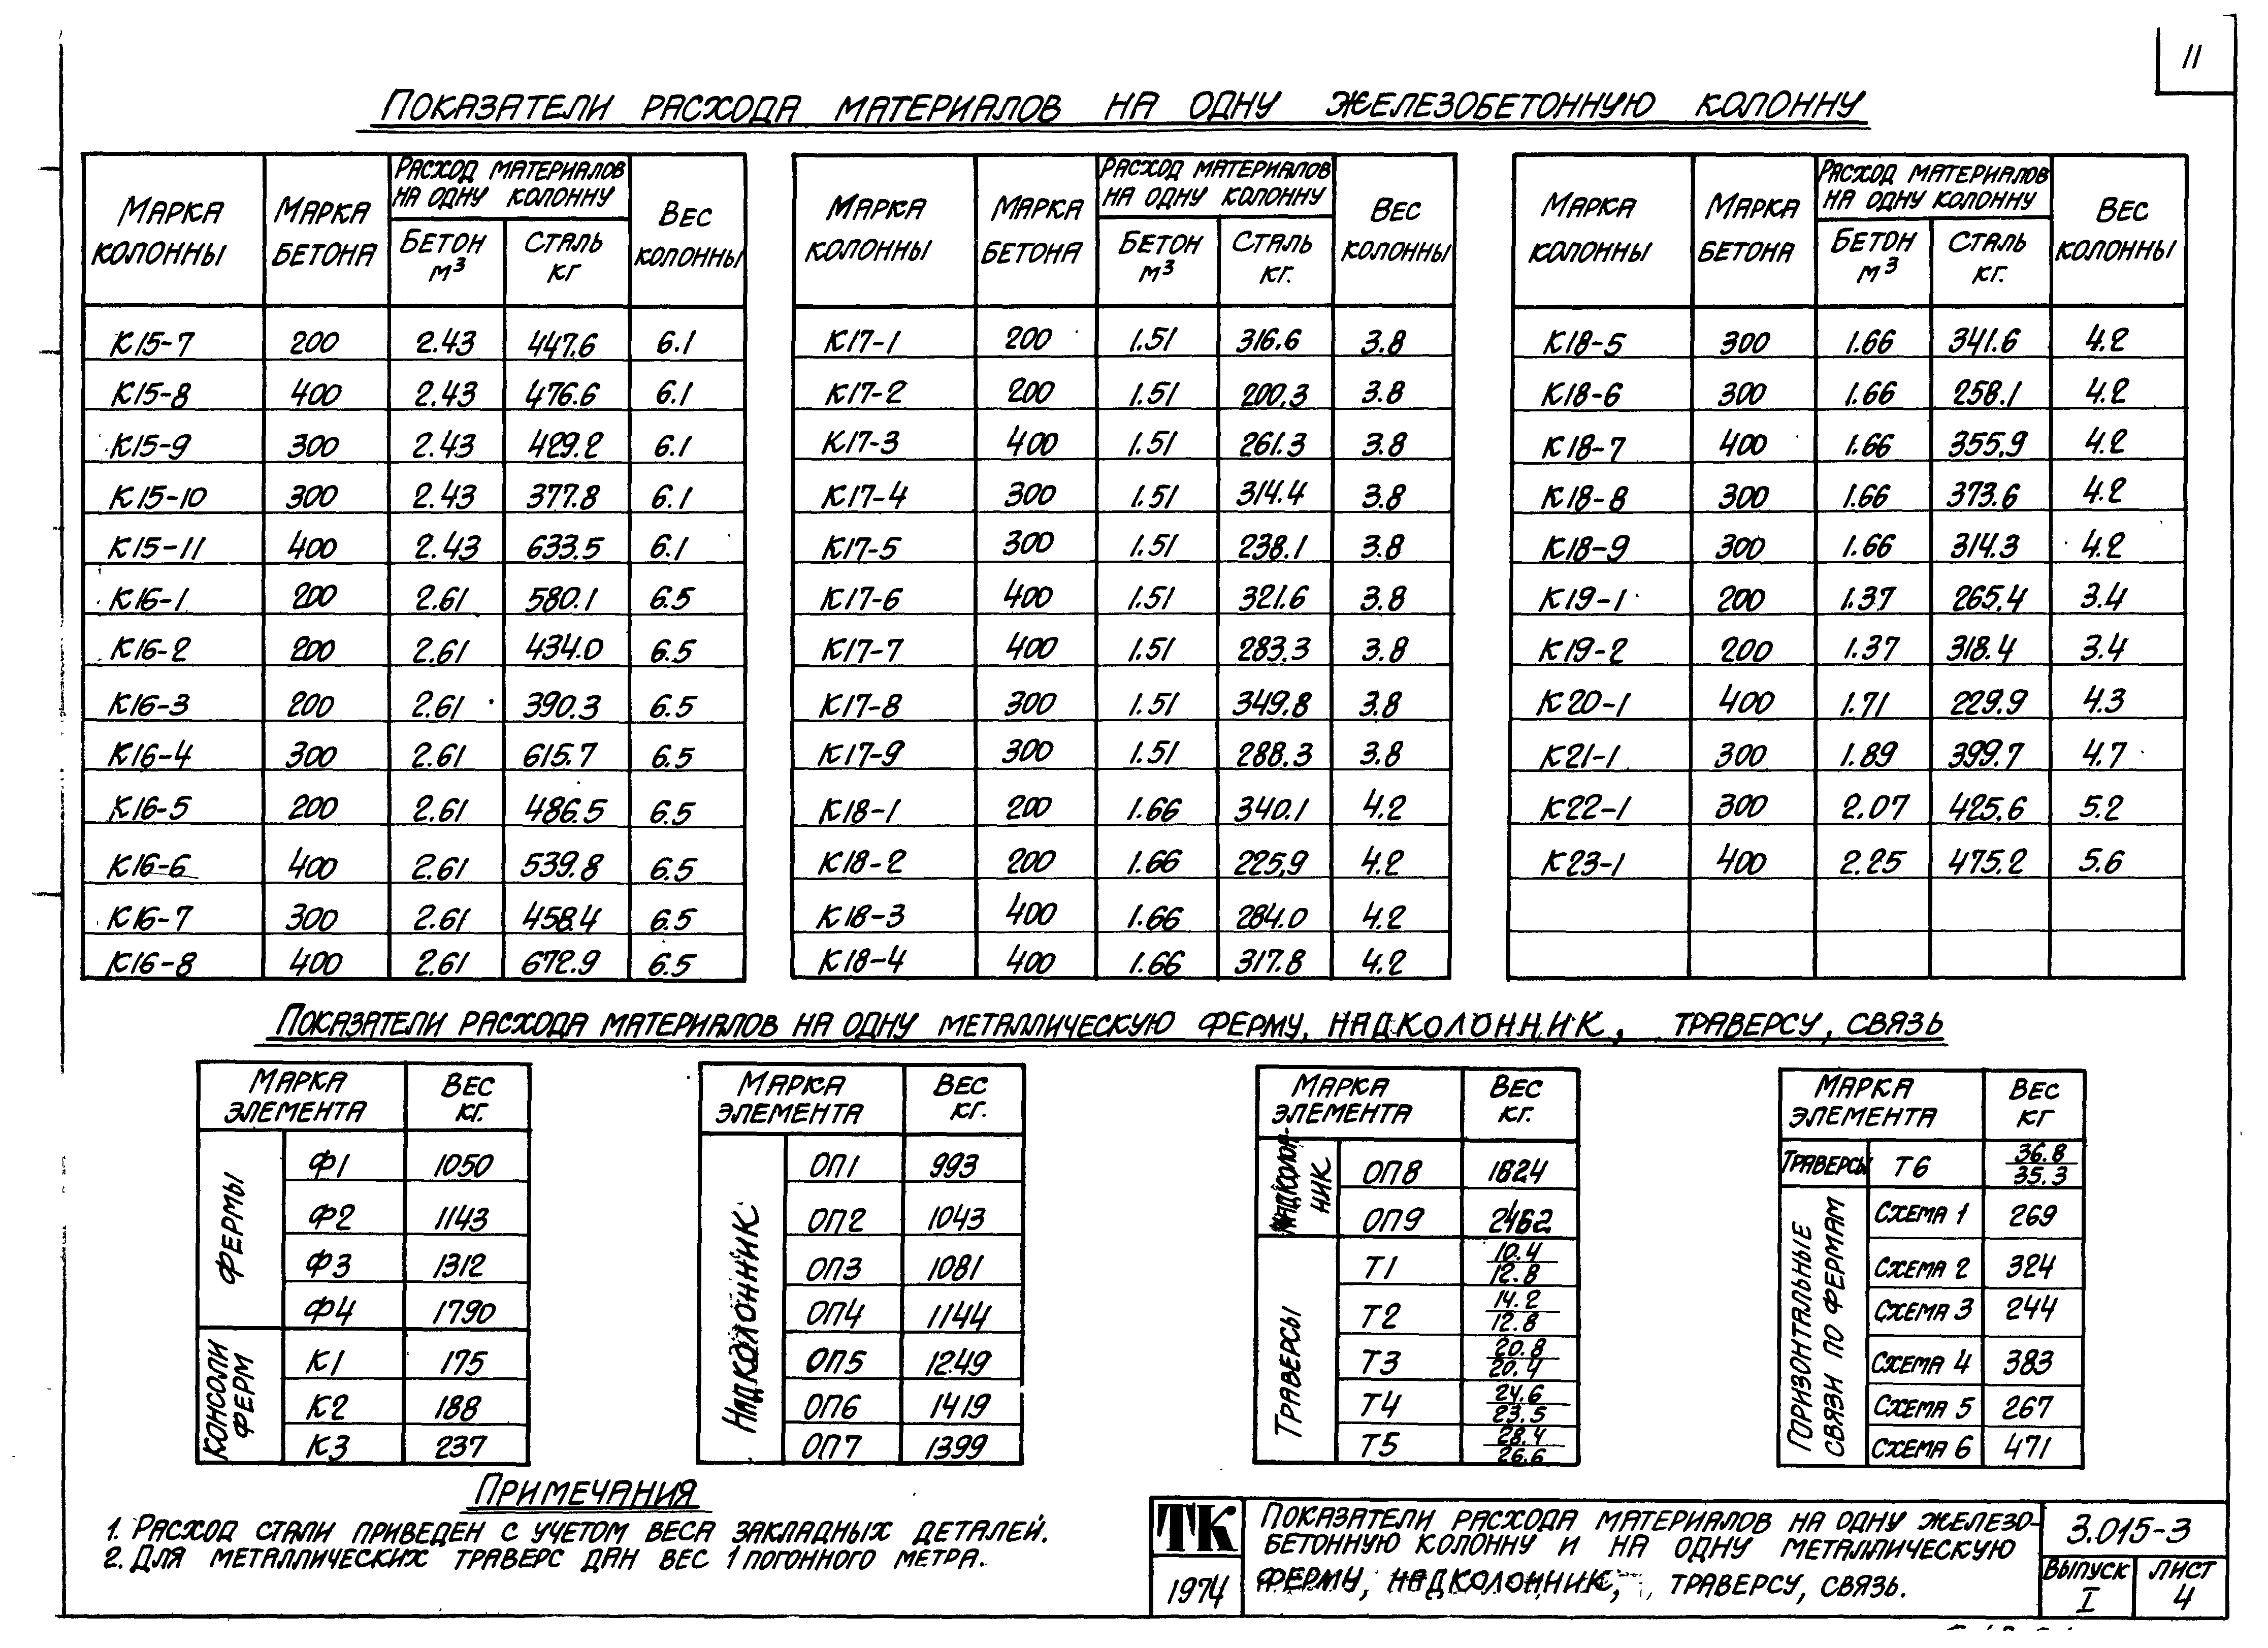 11
Показатели расхода материалов на одну железобетонную колонну
Марка колонны | Марка бетона | Расход материалов на одну колонну | Вес колонны
Бетон м³ | Сталь кг
К15-7 200 2.43 447.6 6.1
К15-8 400 2.43 476.6 6.1
К15-9 300 2.43 429.2 6.1
К15-10 300 2.43 377.8 6.1
К15-11 400 2.43 633.5 6.1
К16-1 200 2.61 580.1 6.5
К16-2 200 2.61 434.0 6.5
К16-3 200 2.61 390.3 6.5
К16-4 300 2.61 615.7 6.5
К16-5 200 2.61 486.5 6.5
К16-6 400 2.61 539.8 6.5
К16-7 300 2.61 458.4 6.5
К16-8 400 2.61 672.9 6.5
Марка колонны | Марка бетона | Расход материалов на одну колонну | Вес колонны
Бетон м³ | Сталь кг.
К17-1 200 1.51 316.6 3.8
К17-2 200 1.51 200.3 3.8
К17-3 400 1.51 261.3 3.8
К17-4 300 1.51 314.4 3.8
К17-5 300 1.51 238.1 3.8
К17-6 400 1.51 321.6 3.8
К17-7 400 1.51 283.3 3.8
К17-8 300 1.51 349.8 3.8
К17-9 300 1.51 288.3 3.8
К18-1 200 1.66 340.1 4.2
К18-2 200 1.66 225,9 4.2
К18-3 400 1.66 284.0 4.2
К18-4 400 1.66 317.8 4.2
Марка колонны | Марка бетона | Расход материалов на одну колонну | Вес колонны
Бетон м³ | Сталь кг.
К18-5 300 1.66 341.6 4.2
К18-6 300 1.66 258.1 4.2
К18-7 400 1.66 355,9 4.2
К18-8 300 1.66 373.6 4.2
К18-9 300 1.66 314.3 4.2
К19-1 200 1.37 265,4 3.4
К19-2 200 1.37 318.4 3.4
К20-1 400 1.71 229.9 4.3
К21-1 300 1.89 399.7 4.7
К22-1 300 2.07 425.6 5.2
К23-1 400 2.25 475.2 5.6
Показатели расхода материалов на одну металлическую ферму, надколонник, траверсу, связь
Марка элемента | Вес кг.
Фермы
Ф1 1050
Ф2 1143
Ф3 1312
Ф4 1790
Консоли ферм
К1 175
К2 188
К3 237
Марка элемента | Вес кг.
Надколонник
ОП1 993
ОП2 1043
ОП3 1081
ОП4 1144
ОП5 1249
ОП6 1419
ОП7 1399
Марка элемента | Вес кг.
Надколон-
ник
ОП8 1824
ОП9 2462
Траверсы
Т1 10.4 / 12.8
Т2 14.2 / 12.8
Т3 20.8 / 20.4
Т4 24.6 / 23.5
Т5 28.4 / 26.6
Марка элемента | Вес кг
Траверсы Т6 36.8 / 35.3
Горизонтальные связи по фермам
Схема 1 269
Схема 2 324
Схема 3 244
Схема 4 383
Схема 5 267
Схема 6 471
Примечания
1. Расход стали приведен с учетом веса закладных деталей.
2. Для металлических траверс дан вес 1 погонного метра.
ТК
1974
Показатели расхода материалов на одну железо-
бетонную колонну и на одну металлическую
ферму, надколонник, траверсу, связь.
3.015-3
Выпуск I
Лист 4